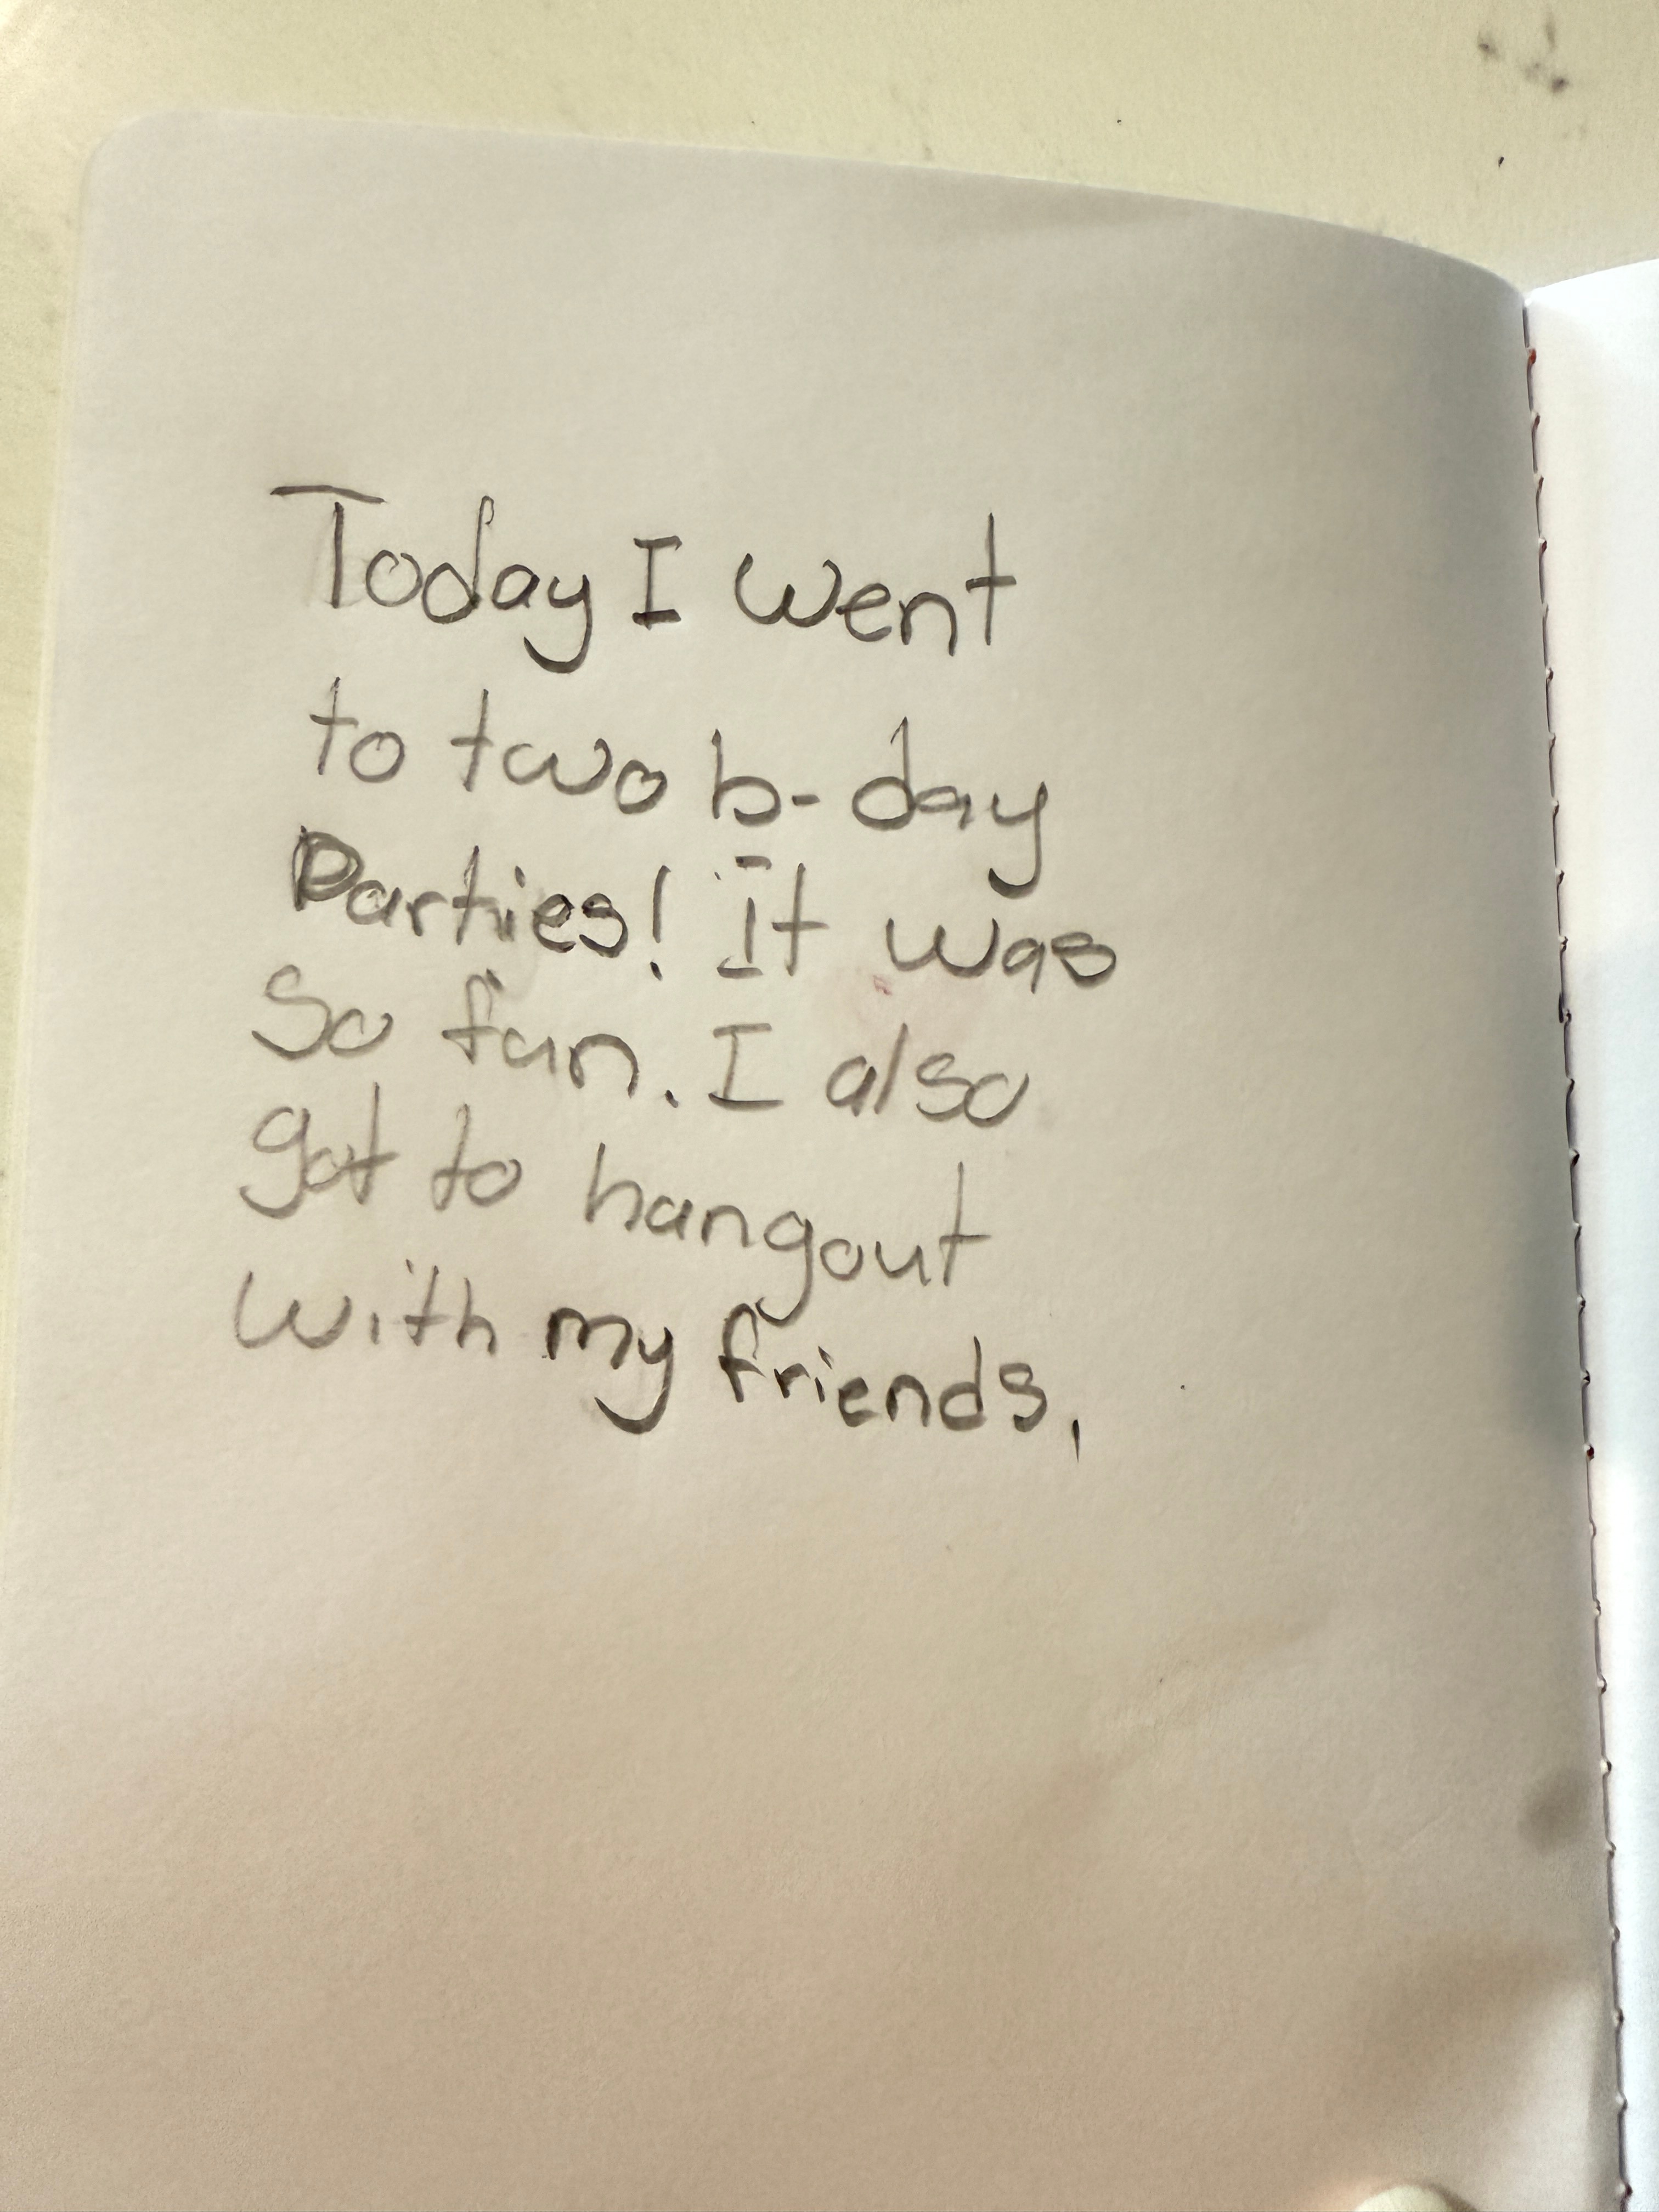 Today I went
to two b-day
Parties! It was
So fun. I also
got to hangout
with my friends,